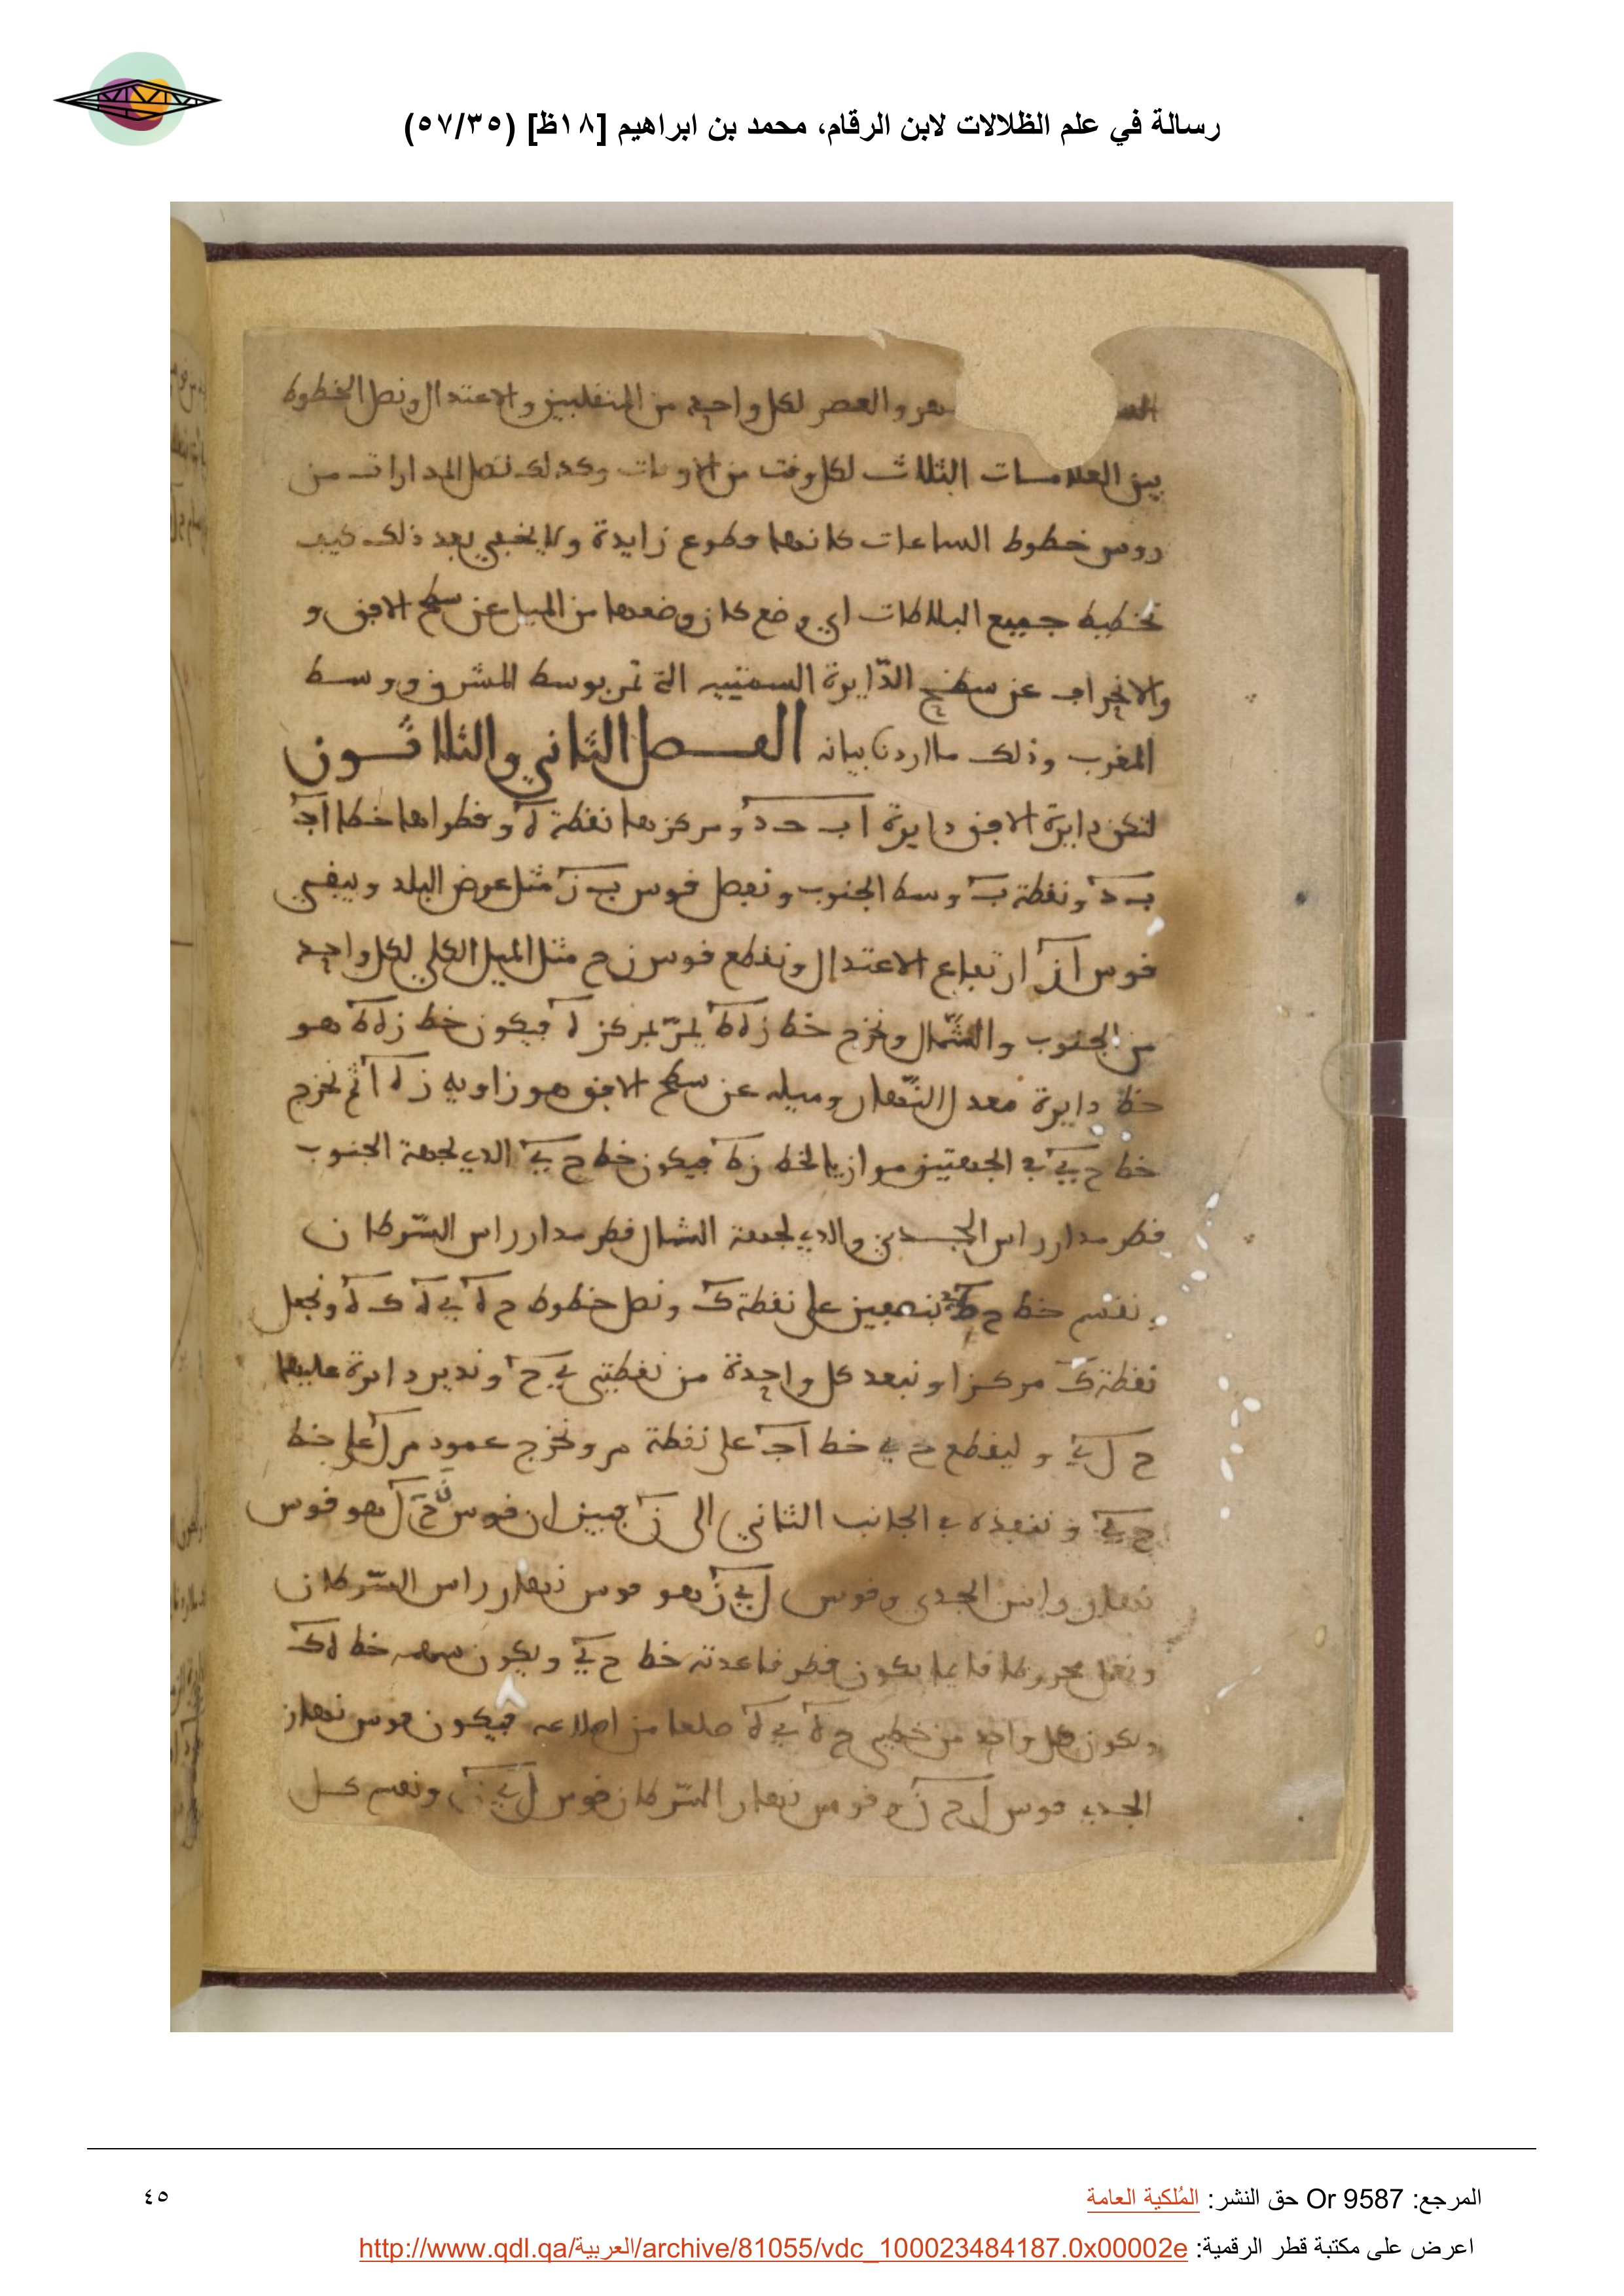 رسالة في علم الظلالات لابن الرقام، محمد بن ابراهيم [١٨ظ] (٥٧/٣٥)
والعصر لكل واحد من المنقلبين والاعتدال ونصل الخطوط
بين العلامات الثلاث لكل وقت من الاوقات وكذلك نصل المدارات من
روس خطوط الساعات كانها قطوع زايدة ولا يخفى بعد ذلك كيف
تخطيط جميع البلاطات اي وضع كان وضعها من الميل عن سطح الافق و
والانحراف عن سطح الدّايرة السمتيه التي تمر بوسط المشرق ووسط
المغرب وذلك ما اردنا بيانه الفصل الثاني والثلاثون
لتكن دايرة الافق دايرة ا ب ح د ومركزها نقطة ه وقطراها خطا ا ج
ب د ونقطة ب وسط الجنوب ونفصل قوس ب ز مثل عرض البلد ويبقى
قوس ا ز ارتفاع الاعتدال ونقطع قوس ز ح مثل الميل الكلي لكل واحد
من الجنوب والشّمال ونخرج خط ز ه ط يمرّ بمركز ه فيكون خط ز ه ط هو
خط دايرة معدل النّهار وميله عن سطح الافق هو زاويه ز ه ا ثم نخرج
خط ح ي في الجهتين موازيا لخط ز ط فيكون خط ح ي الذي لجهة الجنوب
قطر مدار راس الجدي والذي لجهة الشمال قطر مدار راس السّرطان
ونقسم خط ح بنصفين على نقطة ك ونصل خطوط ح ه ي ه ك ه ونجعل
نقطة ك مركزا وببعد كل واحدة من نقطتي ي ح وندير دايرة عليها
ح ل ي وليقطع ح ي خط ا ج على نقطة م ونخرج عمود م ل على خط
ح ي وننفذه في الجانب الثاني الى ن فبين ان قوس ن ح ل هو قوس
نهار راس الجدي وقوس ل ي ن هو قوس نهار راس السّرطان
ونعمل مخروطا قايما يكون قطر قاعدته خط ح ي ويكون سهمه خط ه ك
ويكون كل واحد من خطي ح ه ي ه ضلعا من اضلاعه فيكون قوس نهار
الجدي قوس ل ح ن وقوس نهار السّرطان قوس ل ي ن ونقسم كل
المرجع: Or 9587 حق النشر: المُلكية العامة
٤٥
اعرض على مكتبة قطر الرقمية: http://www.qdl.qa/العربية/archive/81055/vdc_100023484187.0x00002e